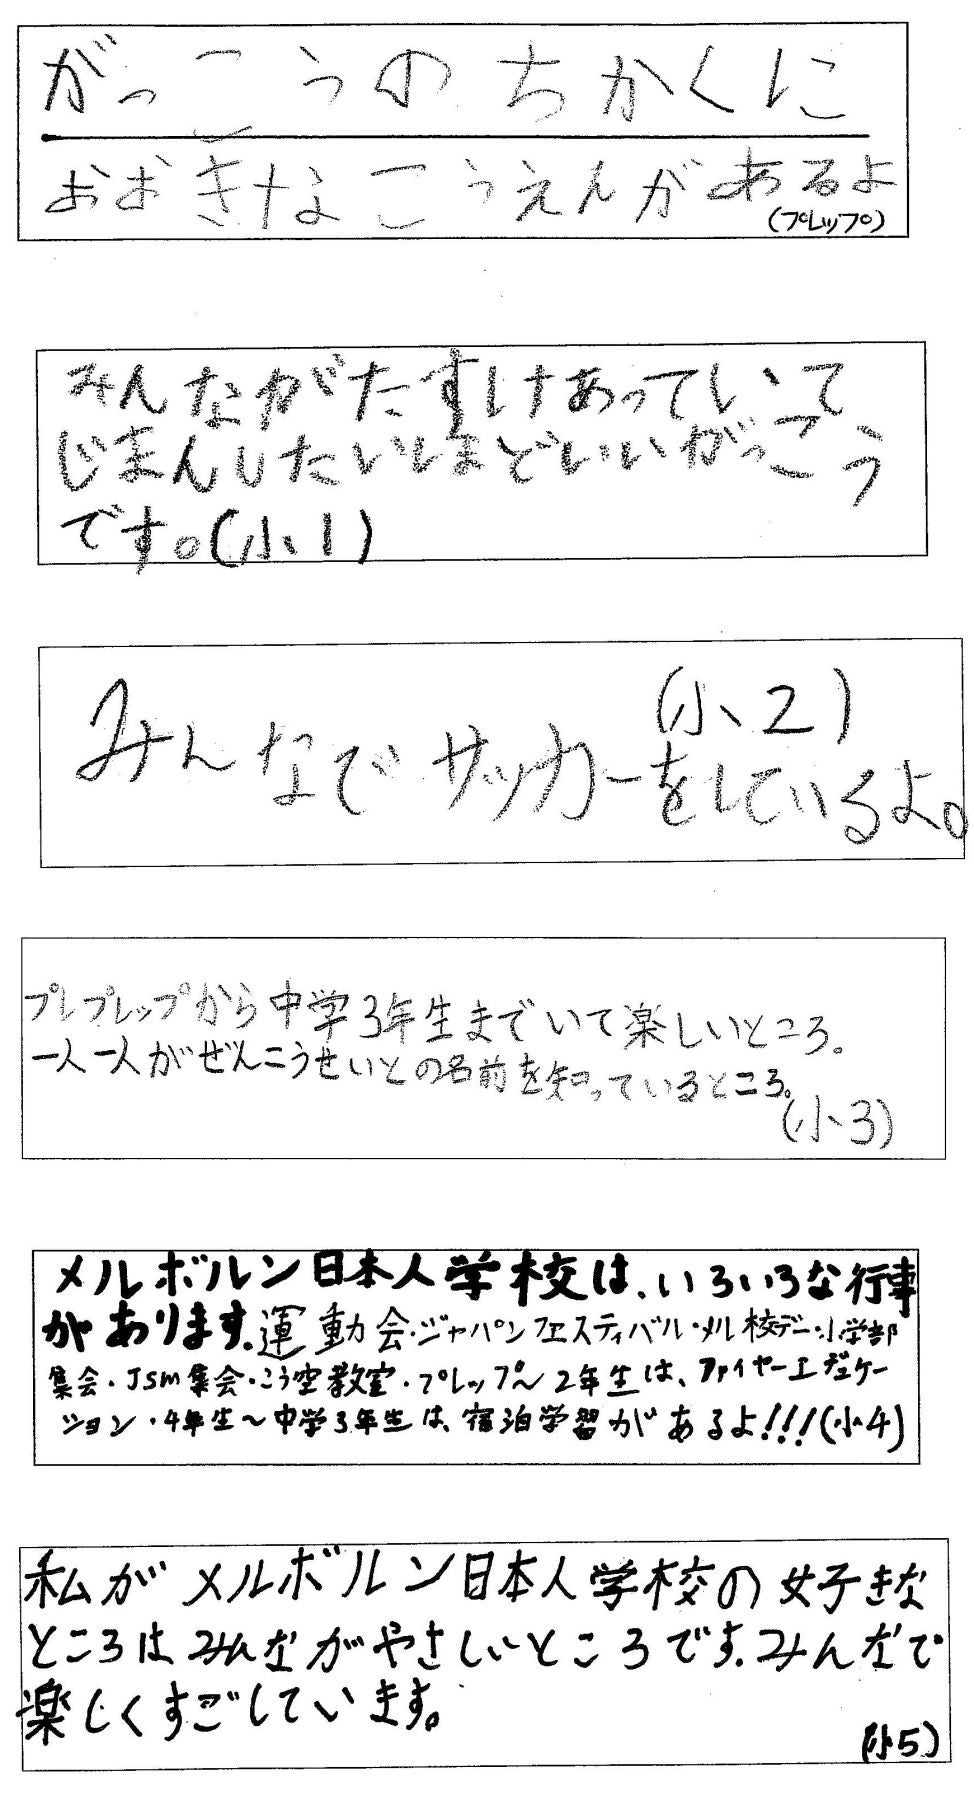 がっこうのちかくに
おおきなこうえんがあるよ
(プレップ)
みんながたすけあっていて
じまんしたいほどいいがっこう
です。(小1)
(小2)
みんなでサッカーをしているよ。
プレプレップから中学3年生までいて楽しいところ。
一人一人がぜんこうせいとの名前を知っているところ。
(小3)
メルボルン日本人学校は、いろいろな行事
があります。運動会・ジャパンフェスティバル・メル校デー・小学部
集会・JSM集会・こう空教室・プレップ～2年生は、ファイヤーエデュケー
ション・4年生～中学3年生は、宿泊学習があるよ!!!(小4)
私がメルボルン日本人学校の好きな
ところは、みんながやさしいところです。みんなで
楽しくすごしています。
(小5)